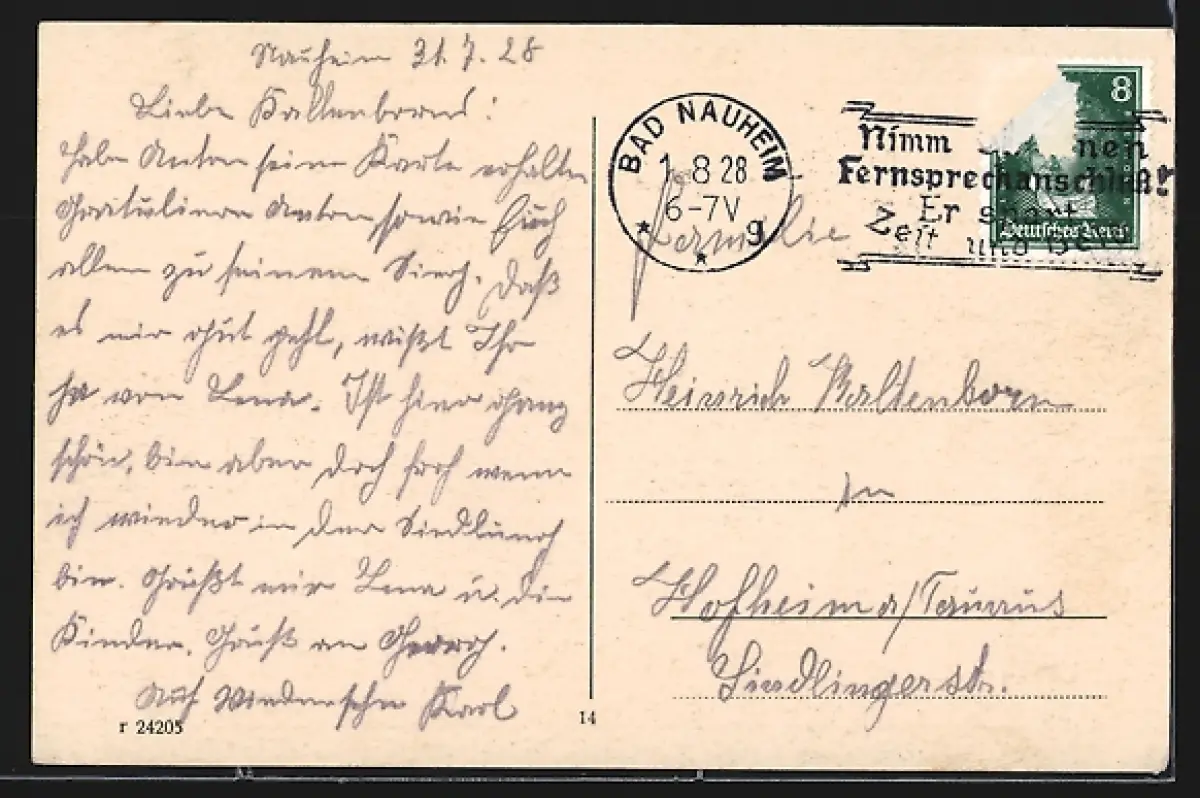 Nauheim 31.7.28
Liebe Kaltenborns!
Habe Anton seine Karte erhalten
Gratuliere Anton, sowie Euch
allen zu seinem Sieg. Daß
es mir gut geht, wißt Ihr
ja von Lena. Ist hier ganz
schön, bin aber doch froh wenn
ich wieder in der Siedlung
bin. Grüßt mir Lena u. die
Kinder. Gruß an Georg.
Auf Wiedersehn Karl
r 24205
14
BAD NAUHEIM
1.8.28
6-7V
g
Nimm nen
Fernsprechanschluß!
Er spart
Zeit und
8
Deutsches Reich
Familie
Heinrich Kaltenborn
In
Hofheim a/Taunus
Sindlingerstr.